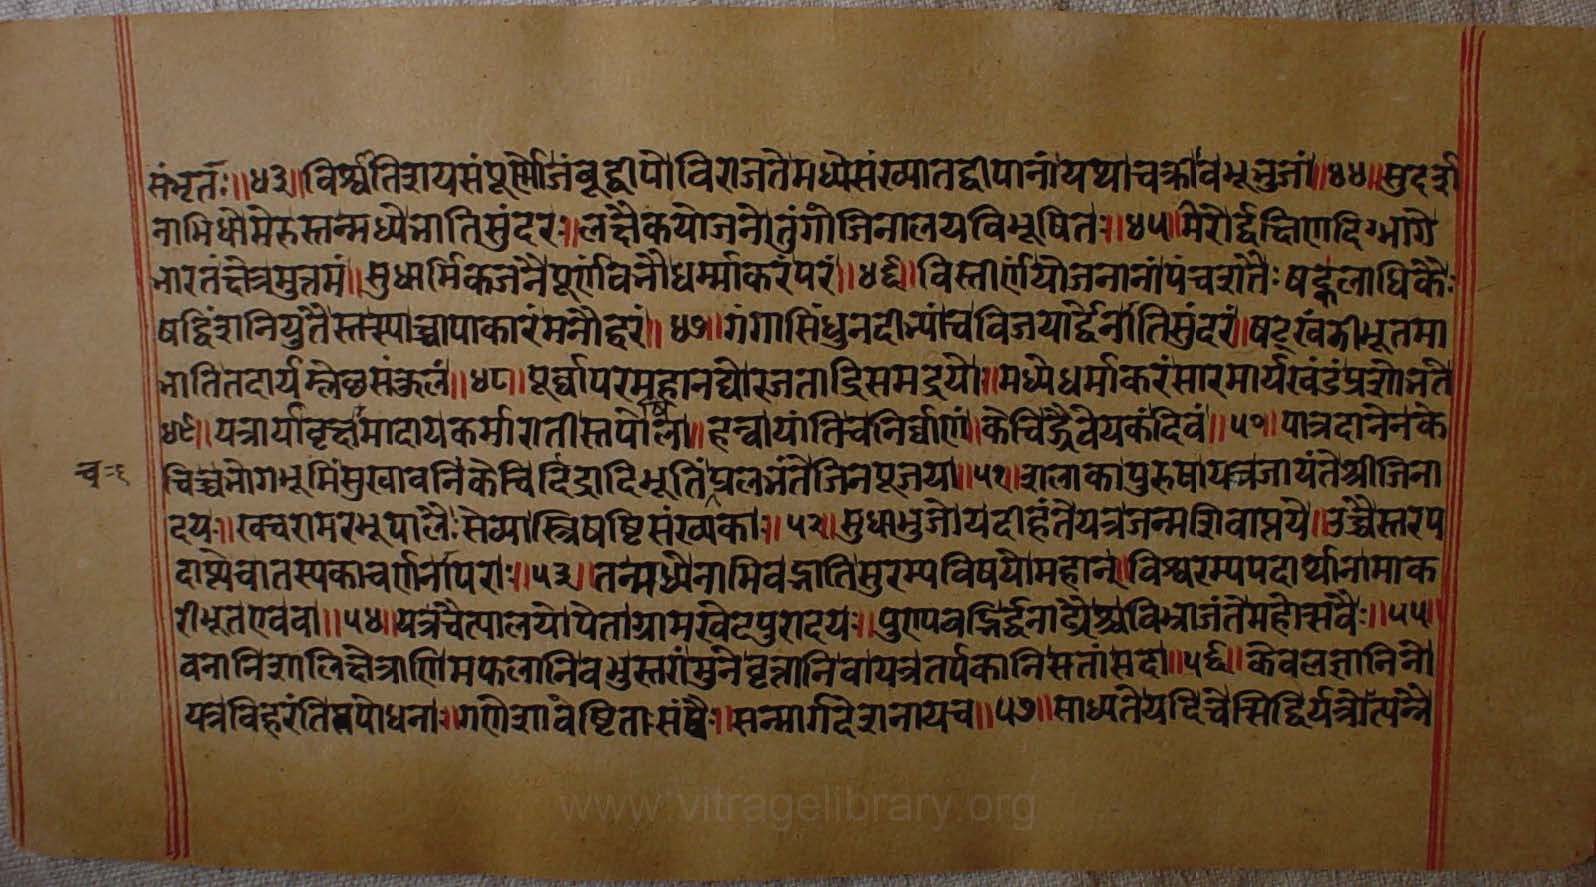 संभृतः ॥ ४३ ॥ विश्र्वातिशयसंपूर्णो जंबूद्वीपो विराजते मध्येसंख्यातद्वीपानां यथा चक्रीव भूभुजां ॥ ४४ ॥ सुदर्श
नाभिधो मेरुस्तन्मध्ये भाति सुंदरः । लक्षैकयोजनोत्तुंगो जिनालयविभूषितः ॥ ४५ ॥ मेरोर्द्दक्षिणदिग्भागे
भारतं क्षेत्रमुत्तमं । सुधार्मिकजनै पूर्णं विनौधर्म्माकरं परं ॥ ४६ ॥ विस्तीर्णं योजनानां पंचशतैः षट्कलाधिकैः
षड्विंशतियुतैस्तस्याच्चापाकारं मनोहरं ॥ ४७ ॥ गंगासिंधुनदीभ्यां च विजयार्द्धेन भाति सुंदरं । षट्खंडीभूतमा
भाति तदार्यम्लेछसंकुलं ॥ ४८ ॥ पूर्व्वापरमहानद्यो रजताद्रिसमद्रयोः । मध्ये धर्माकरं सारमार्यखंडं प्रशोभते
४९ ॥ यत्रार्या वृत्तमादाय कर्मारातीस्तपोर्बला । हत्वा यांति च निर्व्वाणं केचिद्ग्रैवेयकं दिवं ॥ ५० ॥ पात्रदानेन के
चिच्च भोगभूमिं सुखावनिं केचिदिंद्रादिभूतिं प्रलभंते जिनपूजया ॥ ५१ ॥ शलाकापुरुषा यत्र जायंते श्रीजिना
दयः । खचरामरभूपालैः सेव्यास्त्रिषष्टिसंख्यकाः ॥ ५२ ॥ सुधाभुजो यदीहंते यत्र जन्म शिवाप्तये । उच्चैस्तरप
दाप्त्ये वा तस्य का वर्णनापराः ॥ ५३ ॥ तन्मध्ये नाभिवद्भाति सुरम्यविषयो महान् । विश्वरम्यपदार्थानामाक
रीभूत एव वा ॥ ५४ ॥ यत्र चैत्यालयोपेता ग्रामखेटपुरादयः । पुण्यवद्भिर्द्धनाढ्यैश्च विभ्राजंते महोत्सवैः ॥ ५५
वनानि शालिक्षेत्राणि सफलानि वभुस्तरां मुनेवृत्तानि वा यत्र तर्पकानि सतां सदा ॥ ५६ ॥ केवलज्ञानिनो
यत्र विहरंति तपोधनाः । गणेशा वेष्टिताः संघैः । सन्मार्गदेशनाय च ॥ ५७ ॥ साध्यते यदि चेत्सिद्धिर्यत्रोत्पन्नै
www.vitragelibrary.org